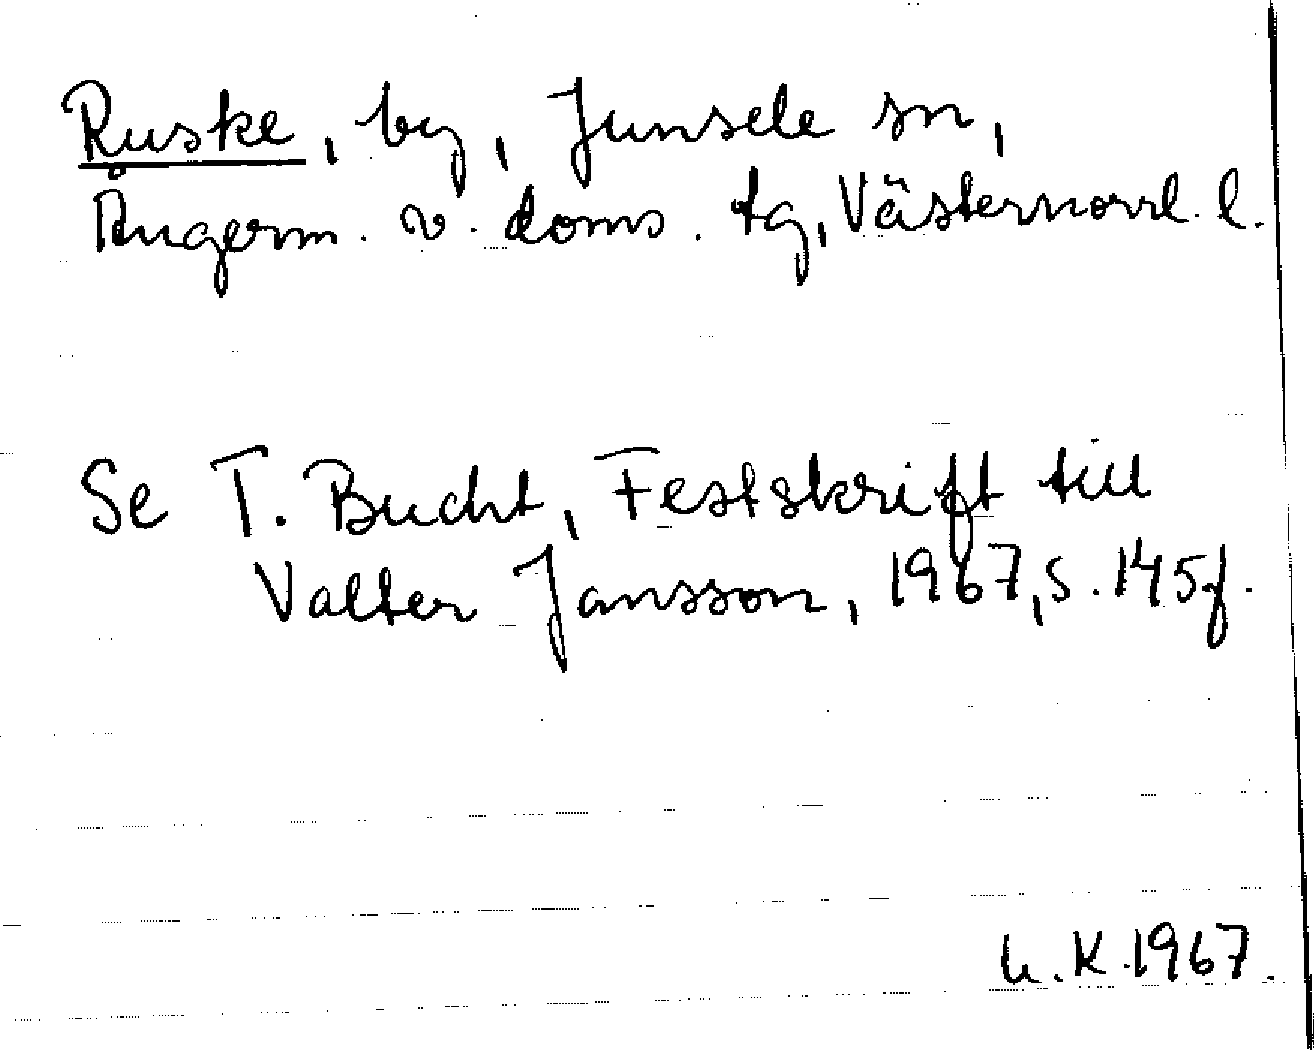 Ruske, by, Junsele sn,
Ångerm. v. doms. tg, Västernorrl. l.
Se T. Bucht, Festskrift till
Valter Jansson, 1967, s. 145f.
h.K.1967.